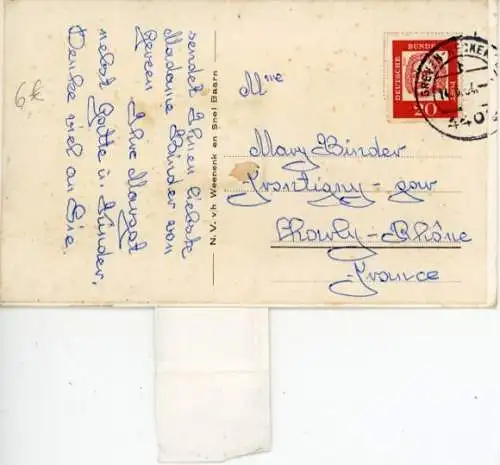 sendet Ihnen liebste
Madame Binder von
Ihre Margot
nebst Gatte u. Kinder.
Denke viel an Sie.
6€
N.V. v/h Weenenk en Snel Baarn
Mme
Mary Binder
Frontigny - par
Rhône
France
DEUTSCHE BUNDESPOST
20
GREVEN-
4401